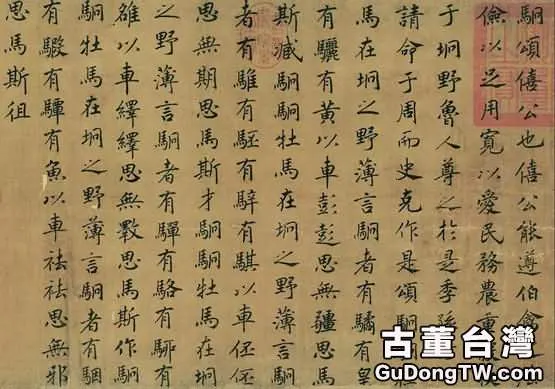 駉頌僖公也僖公能遵伯禽
儉以足用寬以愛民務農重
于坰野魯人尊之於是季孫
請命于周而史克作是頌駉
馬在坰之野薄言駉者有驈有皇
有驪有黃以車彭彭思無疆思馬
斯臧駉駉牡馬在坰之野薄言駉
者有騅有駓有騂有騏以車伾伾
思無期思馬斯才駉駉牡馬在坰
之野薄言駉者有驒有駱有駵有
雒以車繹繹思無斁思馬斯作駉
駉牡馬在坰之野薄言駉者有駰
有騢有驔有魚以車祛祛思無邪
思馬斯徂
古董台灣
GuDongTW.com